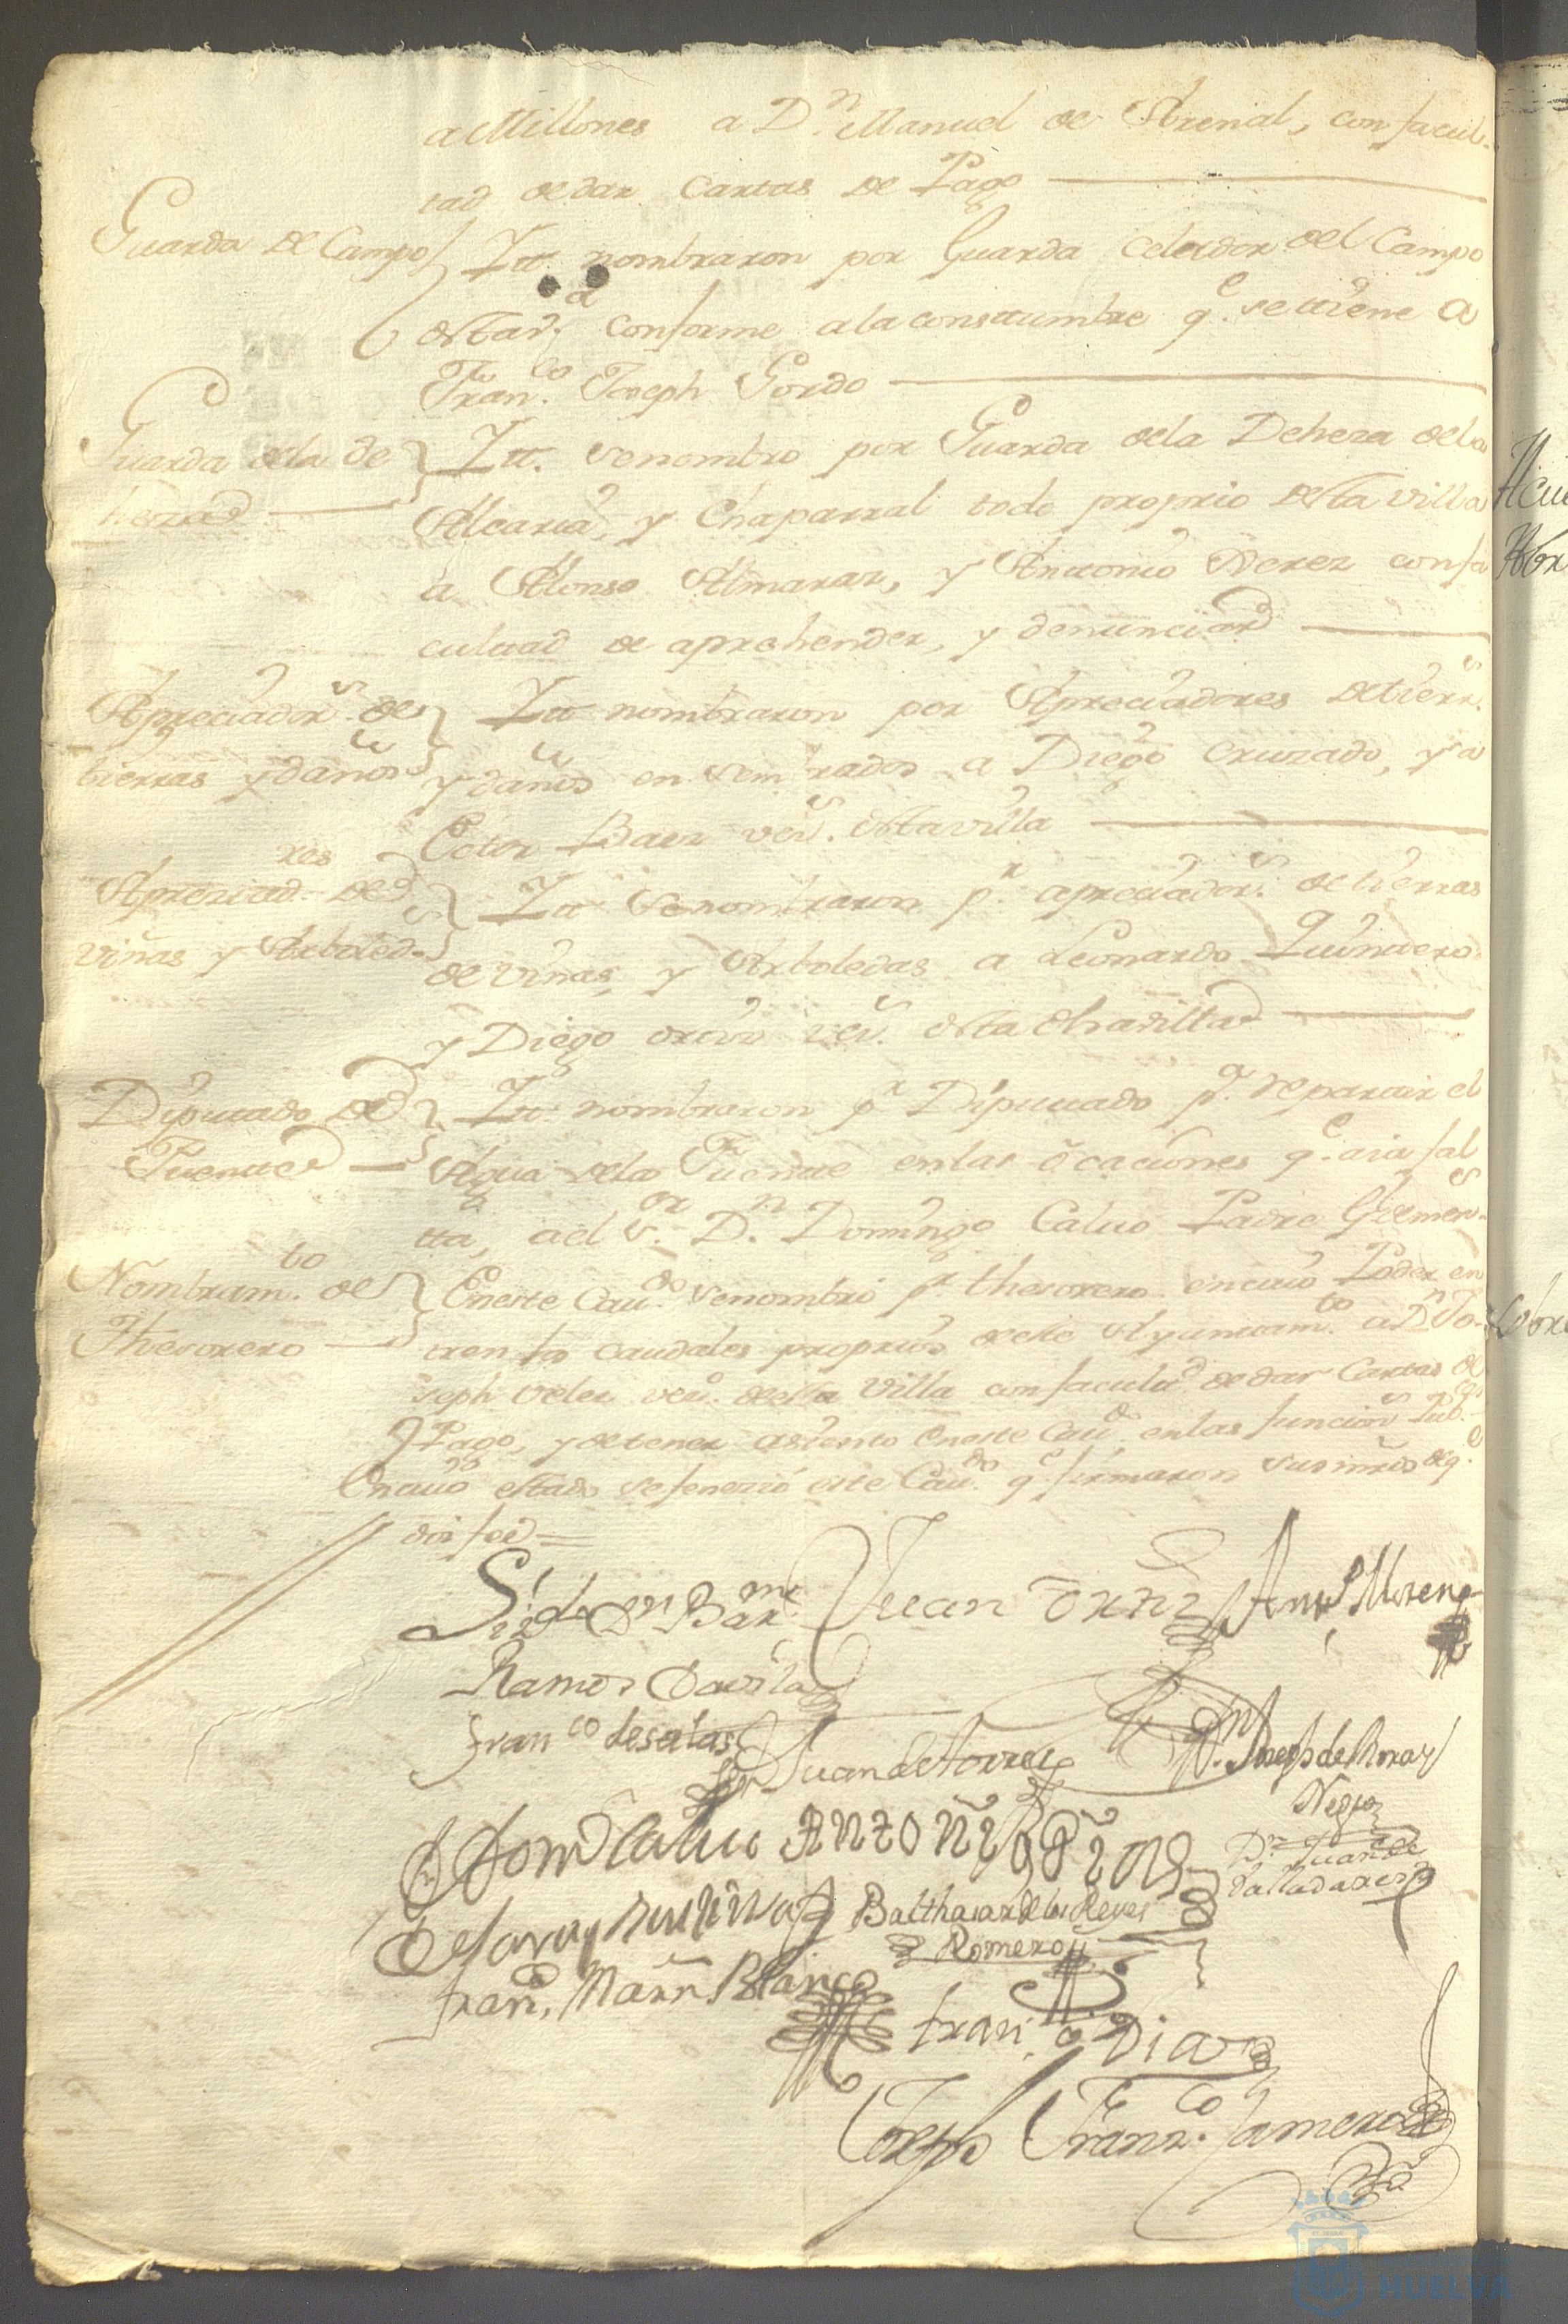 a Millones a D.n Manuel de Arenal, con facul-
tad de dar Cartas de Pago
Guarda de Campo
Itt. nombraron por Guarda Celador del Campo
desta v.a conforme a la consttumbre q.e se ttiene a
Fran.co Joseph Gordo
Guarda de la de
heza
Itt. se nombro por Guarda de la Deheza de la
Alcaria, y Chaparral todo proprio desta villa
a Alonso Almaraz, y Anttonio Perez con fa
culttad de aprehender, y denunciar
Apreciador.s de
tierras y daños
Itt nombraron por Apreciadores de tierr.s
y daños en sembrados a Diego Cruzado, y a
Ector Baez vez.s destta villa
Apreziad.res de
viñas y Arboled.s
Itt se nombraron p.r apreciador.s de tierras
de viñas, y Arboledas a Leonardo Quinttero
y Diego orttiz vez.s desta dha villa
Diputtado de
Fuentte
Itt nombraron p.r Diputtado p.a repartir el
Agua de la Fuentte en las ocaciones q.e aia fal
tta, a el S.or D.n Domingo Calvo Padre Gremen.s
Nombram.to de
Thesorero
En este Cav.do se nombró p.r thesorero en cuio Poder en
tren los caudales proprios de este Ayunttam.to a D.n Jo-
seph Velez vez.o de esta Villa con facultd de dar Carttas de
Pago, y de tener asiento en este Cav.do en las funcion.s Pub.cas
En cuio estado se fenezió este Cav.do q.e firmaron sus mrds de q.e
doi fee =
Liz.do Dn Bar.me Juan Ortiz Ant.o Moreno
Ramos Davila
fran.co de salas Juan de torres D.n Joseph de Roxas
Negro
Dom.o Calvo Antonio
D.n Juan de
Valladares
Balthasar de los Reyes
Romero
fran.co Marn Blanco
fran.co Diaz
Joseph Fran.co